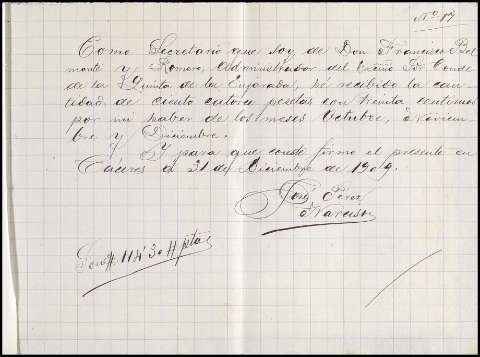 Nº 17
Como Secretario que soy de Don Francisco Bel
monte y Romero, Administrador del Excmo Sr Conde
de la Quinta de la Enjarada, hé recibido la can-
tidad de ciento catorce pesetas con treinta centimos
por mi haber de los meses Octubre, Noviem-
bre y Diciembre.
Y para que conste firmo el presente en
Cáceres á 31 de Diciembre de 1909.
José Pérez
Narciso
Son # 114'30 # ptas